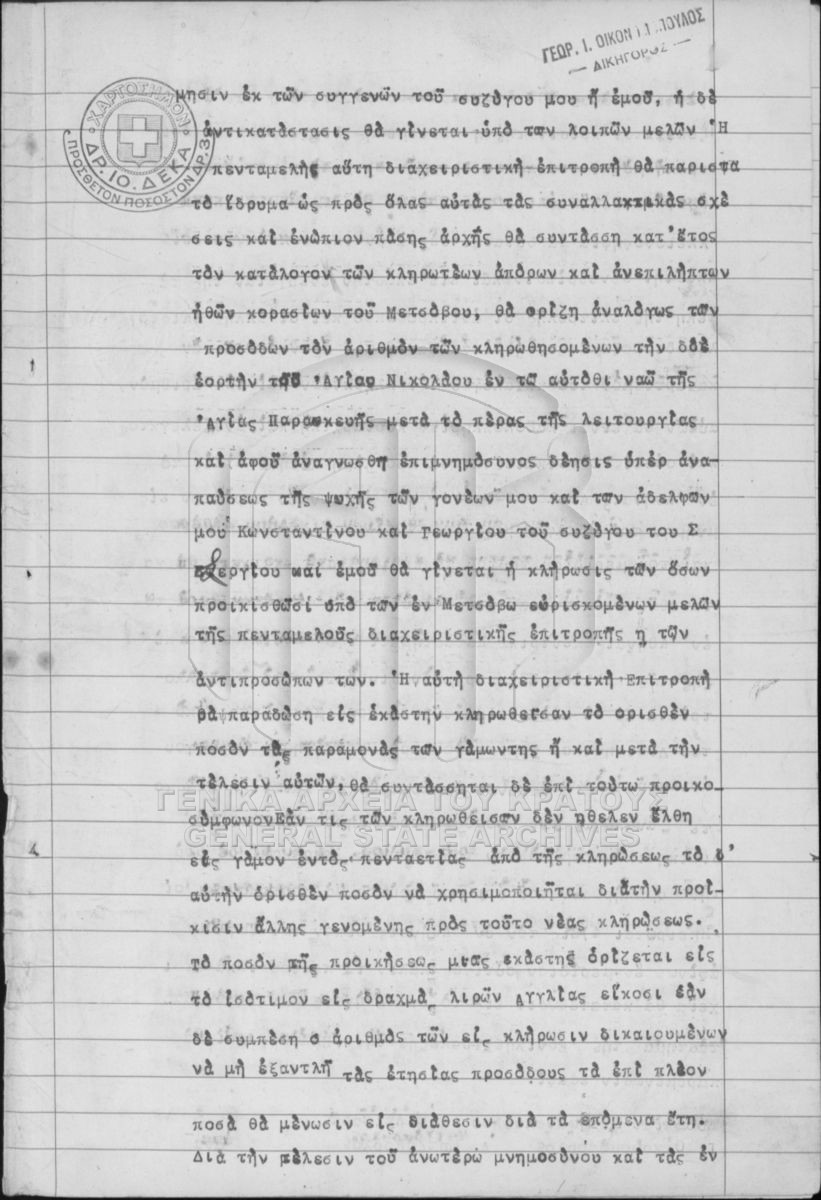 ΓΕΩΡ. Ι. ΟΙΚΟΝ
ΔΙΚΗΓΟΡΟΣ
ΧΑΡΤΟΣΗΜΟΝ
ΔΡ. 10. ΔΕΚΑ
ΠΡΟΣΘΕΤΟΝ ΠΟΣΟΣΤΟΝ ΔΡ. 3
μησιν ἐκ τῶν συγγενῶν τοῦ συζύγου μου ἤ ἐμοῦ, ἡ δὲ
ἀντικατάστασις θὰ γίνεται ὑπὸ των λοιπῶν μελῶν Ἡ
πενταμελής αὕτη διαχειριστικὴ ἐπιτροπὴ θὰ παριστα
τὸ ἵδρυμα ὡς πρὸς ὅλας αὐτὰς τὰς συναλλακτικὰς σχέ
σεις καὶ ἐνώπιον πάσης ἀρχῆς θὰ συντάσση κατ'ἔτος
τὸν κατάλογον τῶν κληρωτέων ἀπόρων καὶ ἀνεπιλήπτων
ἠθῶν κορασίων τοῦ Μετσόβου, θὰ ὁρίζη ἀναλόγως των
προσόδων τὸν ἀριθμὸν τῶν κληρωθησομένων τὴν δδὲ
ἑορτὴν τοῦ Ἁγίου Νικολάου ἐν τω αὐτόθι ναῶ τῆς
Ἁγίας Παρασκευῆς μετὰ τὸ πέρας τῆς λειτουργίας
καὶ ἀφοῦ ἀναγνωσθῆ ἐπιμνημόσυνος δέησις ὑπὲρ ἀνα-
παύσεως τῆς ψυχῆς τῶν γονέων μου καὶ των ἀδελφων
μου Κωνσταντίνου καὶ Γεωργίου τοῦ συζύγου του Σ
εργίου καὶ ἐμοῦ θὰ γίνεται ἡ κλήρωσις τῶν ὅσων
προικισθῶσι ὑπὸ των ἐν Μετσόβω εὑρισκομένων μελῶν
τῆς πενταμελοῦς διαχειριστικῆς ἐπιτροπῆς η τῶν
ἀντιπροσώπων των. Ἡ αὐτὴ διαχειριστικὴ Επιτροπὴ
θὰ παραδώση εἰς ἑκάστην κληρωθεισαν τὸ ορισθὲν
ποσὸν τὰς παραμονὰς των γάμωντης ἤ καὶ μετὰ τὴν
τέλεσιν αὐτῶν, θὰ συντάσσηται δὲ ἐπὶ τούτω προικο-
σύμφωνονΕὰν τις τῶν κληρωθεισων δὲν ηθελεν ἔλθη
εἰς γάμον ἐντὸς πενταετίας ἀπὸ τῆς κληρώσεως τὸ δ'
αὐτὴν ὁρισθὲν ποσὸν νὰ χρησιμοποιῆται διὰτὴν προί-
κισιν ἄλλης γενομένης πρὸς τοῦτο νέας κληρώσεως.
τὸ ποσὸν τῆς προικήσεως μιας εκάστης ὁρίζεται εἰς
τὸ ἰσότιμον εἰς δραχμὰς λιρῶν Αγγλίας εἴκοσι ἐὰν
δὲ συμπέση ο ἀριθμὸς τῶν εἰς κλήρωσιν δικαιουμένων
νὰ μὴ ἐξαντλῆ τὰς ἐτησίας προσόδους τὰ ἐπὶ πλέον
ποσὰ θὰ μένωσιν εἰς διάθεσιν διὰ τὰ επόμενα ἔτη.
Διὰ τὴν τέλεσιν τοῦ ἀνωτέρω μνημοσύνου καὶ τὰς ἐν
ΓΕΝΙΚΑ ΑΡΧΕΙΑ ΤΟΥ ΚΡΑΤΟΥΣ
GENERAL STATE ARCHIVES